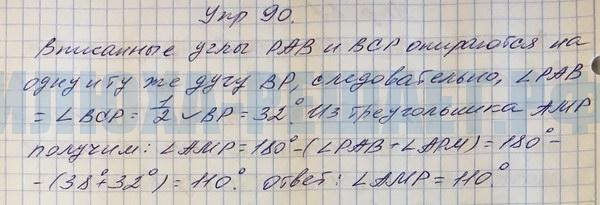 Упр 90.
Вписанные углы PAB и BCP опираются на
одну и ту же дугу BP, следовательно, ∠PAB
= ∠BCP = 1/2 ◡BP = 32° Из треугольника AMP
получим: ∠AMP = 180° - (∠PAB + ∠APM) = 180° -
- (38° + 32°) = 110°. ответ: ∠AMP = 110°.